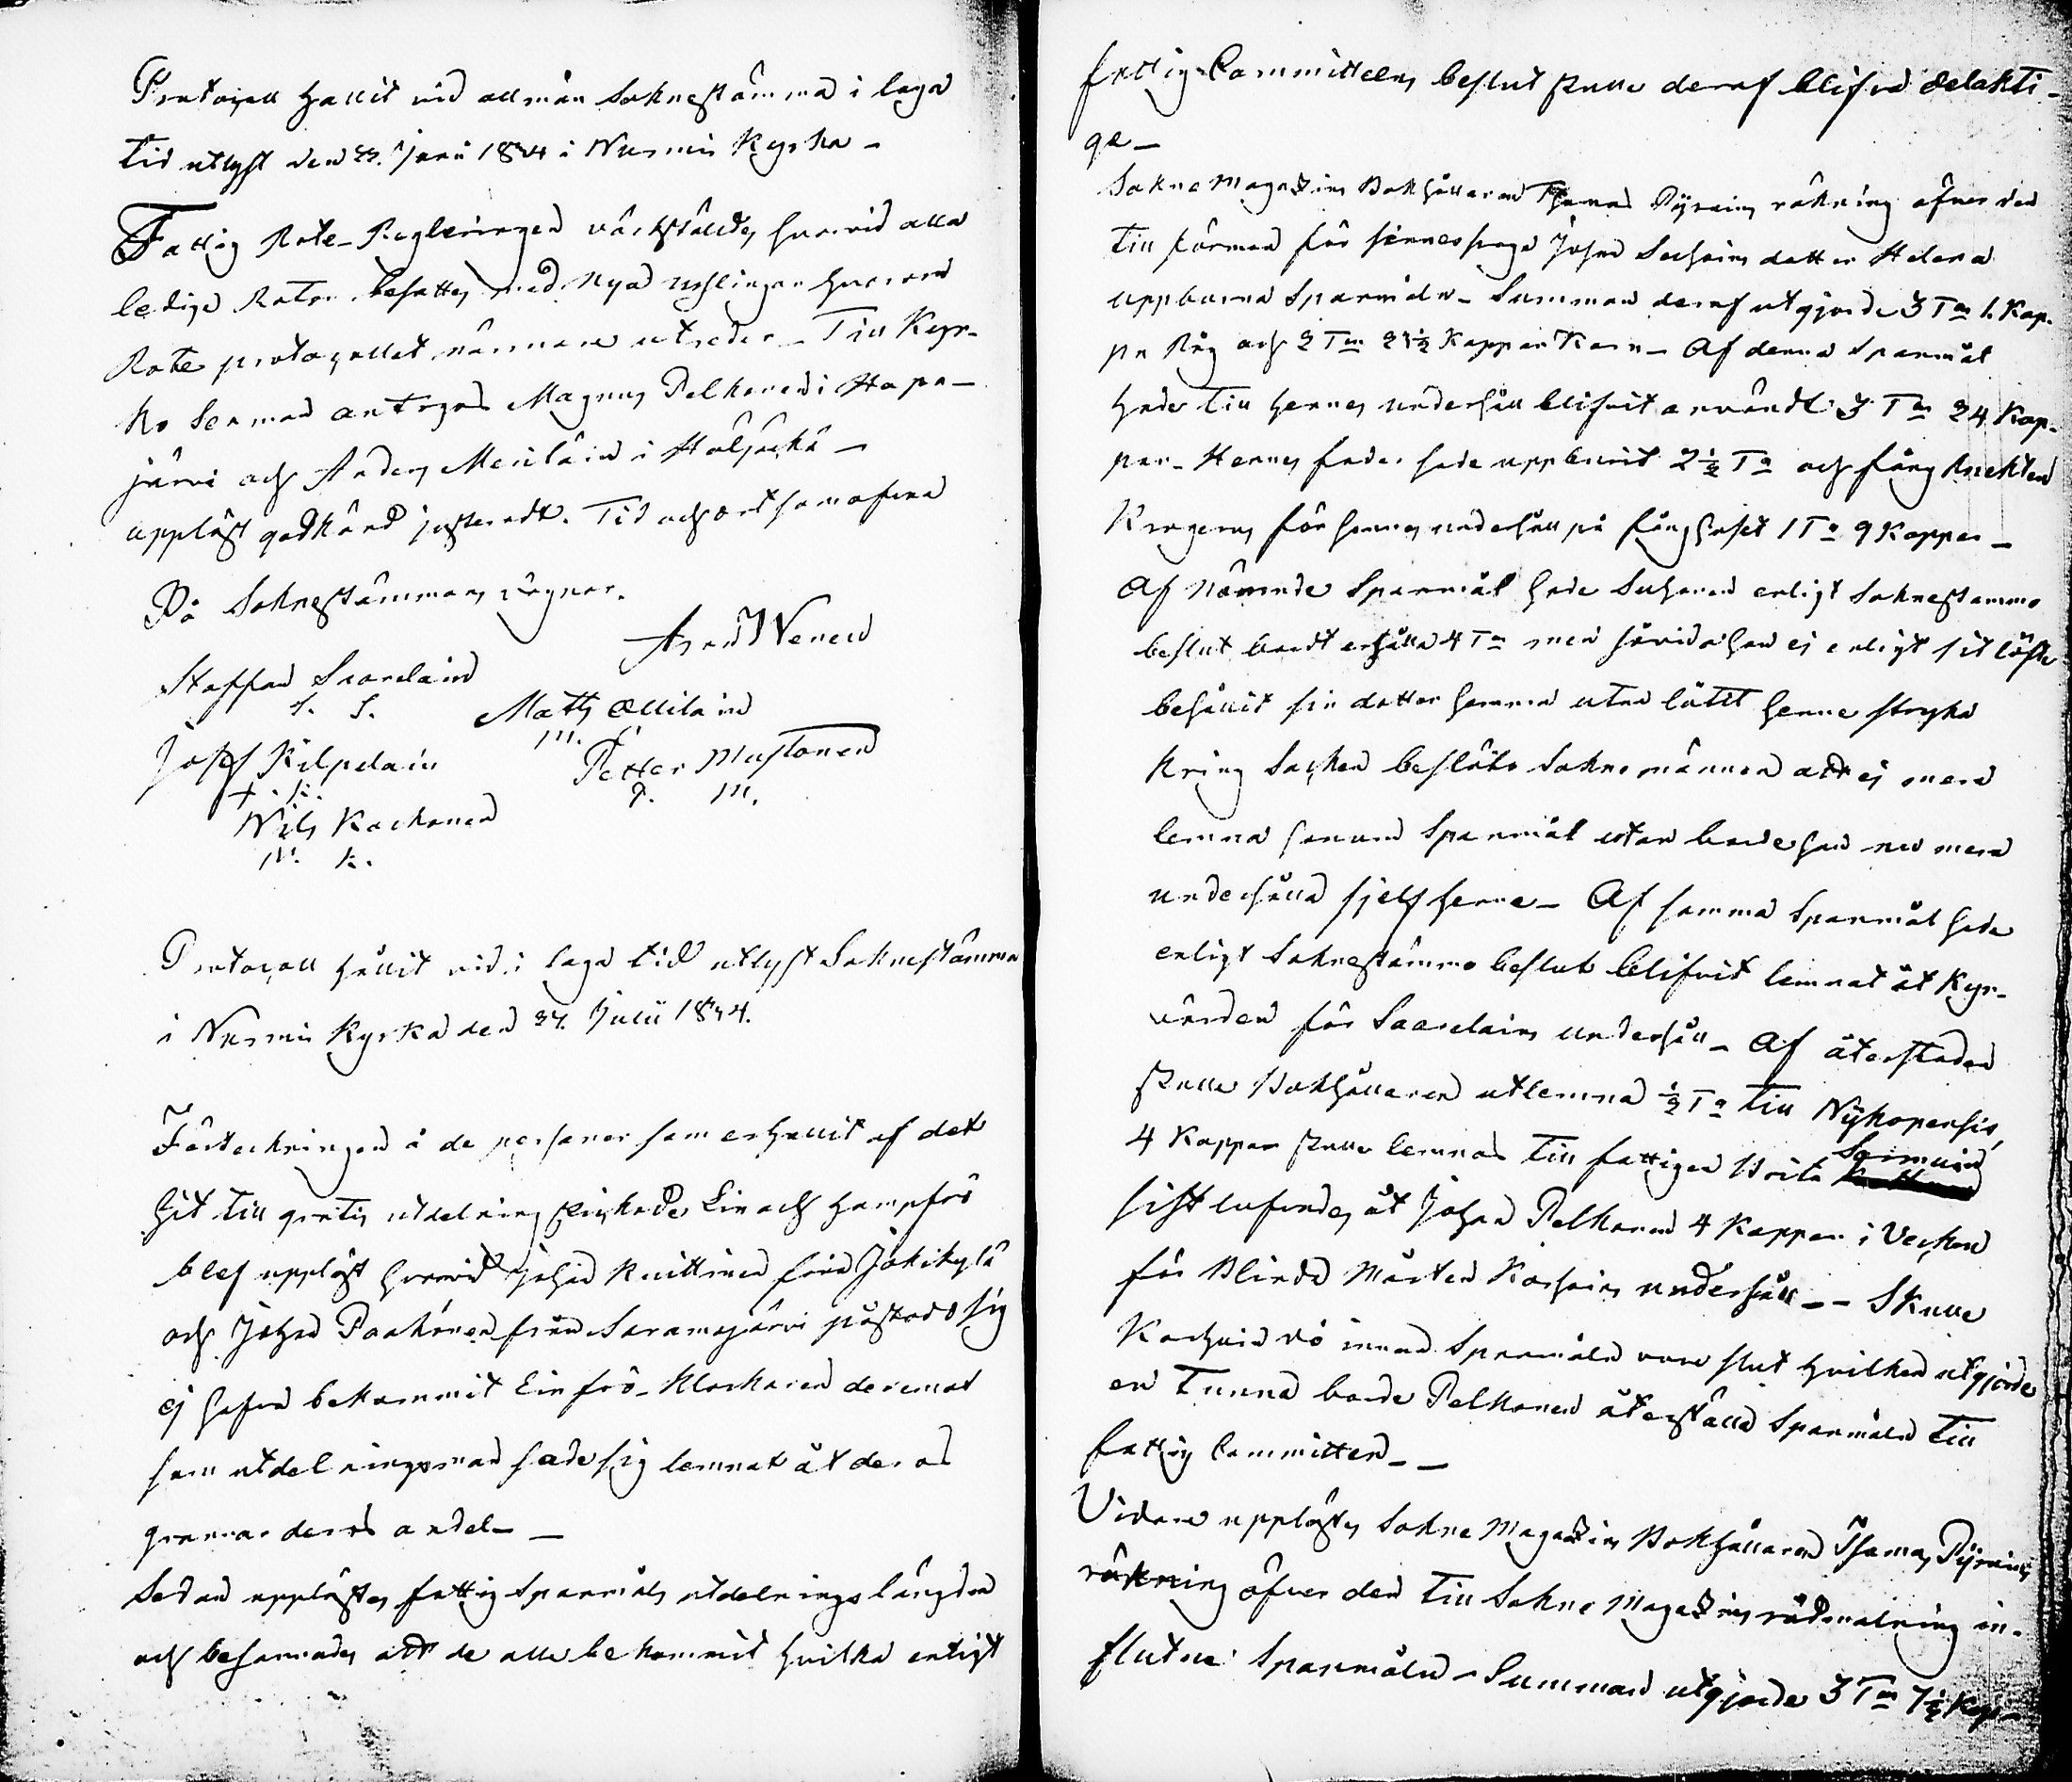 Protocoll hållit vid allmän Soknestämma i laga
tid utlyst den Junii 1834 i Nurmis Kyrka -
Fattig Rote-Regleringen värkstäldes, hvarvid alla
ledige Rotor besattes med nya usslingar hvarom
Rote protocollet närmare utreder - Till Kyr-
ko Sexmän antogos Magnus Pelkonen i Hapa-
järvi och Anders Meriläin i Höljäckä -
uppläst godkänd justeradt. Tid och ort som ofvan
På Soknestämmans vägnar.
Aron Nenen
Staffan Saarelain
S. S.
Matts Ollilain
M.
Josef Kilpelain
Petter Mustonen
P. M.
+. K.
Nils Kackonen
N. K.
Protocoll hållit vid i laga tid utlyst Soknestämma
i Nurmis Kyrka den 27. Julii 1834.
Förteckningen å de personer som erhållit af det
hit till gratis utdelning skickade Lin och hampfrö
blef uppläst hvarvid Johan Knittinen från Jokikylä
och Johan Paakönen från Saramojärvi påstodo sig
ej hafva bekommit Linfrö - Klockaren deremot
som utdelningsman sade sig lemnat åt deras
grannar deras andel - -
Sedan upplästes fattig Spanmåls utdelnings längden
och besannades att de alla bekommit hvilka enligt
fattig Committéens beslut skulle deraf blifva delakti-
ge -
Sokne Magazins Bokhållaren Thomas Pyrains räkning öfver den
till förmån för sinnessvaga Johan Suhoins dotter Helena
uppburna Spanmåln - Summan deraf utgjorde 3 T:r 1. Kap-
pe Råg och 2 T:r 21 1/2 Kappar Korn - Af denna Spanmål
hade till hennes underhåll blifvit användt 3 T:r 24 Kap-
par - Hennes fader hade uppburit 2 1/2 T:a och fång knekten
Krogerus för hennes underhåll på fånghuset 1 T:a 9 Kappar -
Af nämnde Spanmål hade Suhonen enligt Soknestämmo
beslut bordt erhålla 4 T:r men såvida han ej enligt sit löfte
behållit sin dotter hemma utan låtit henne stryka
kring Socken beslöto Soknemännen att ej mera
lemna honom Spanmål utan borde han nu mera
underhålla sjelf henne - Af samma Spanmål hade
enligt Soknestämmo beslut blifvit lemnat åt Kyr-
värden för Saarelains underhåll - Af återstoden
skulle Bokhållaren utlemna 1/2 T:a till Nykopensis,
4 Kappar skulle lemnas till fattigen Brita Sormuin
sistlefvandes åt Johan Pelkonen 4 Kappar i Veckan
för Blinda Mårten Korhoins underhåll - - Skulle
Korhoin dö innan Spanmåln vore slut hvilken utgjorde
en Tunna borde Pelkonen återställa Spanmåln till
fattig Committén - -
Vidare upplästes Sokne Magazins Bokhållaren Thomas Pyrains
räkning öfver den till Sokne Magazins rådmalning in-
flutne Spanmåln - Summan utgjorde 3 T:r 7 1/2 Kap-